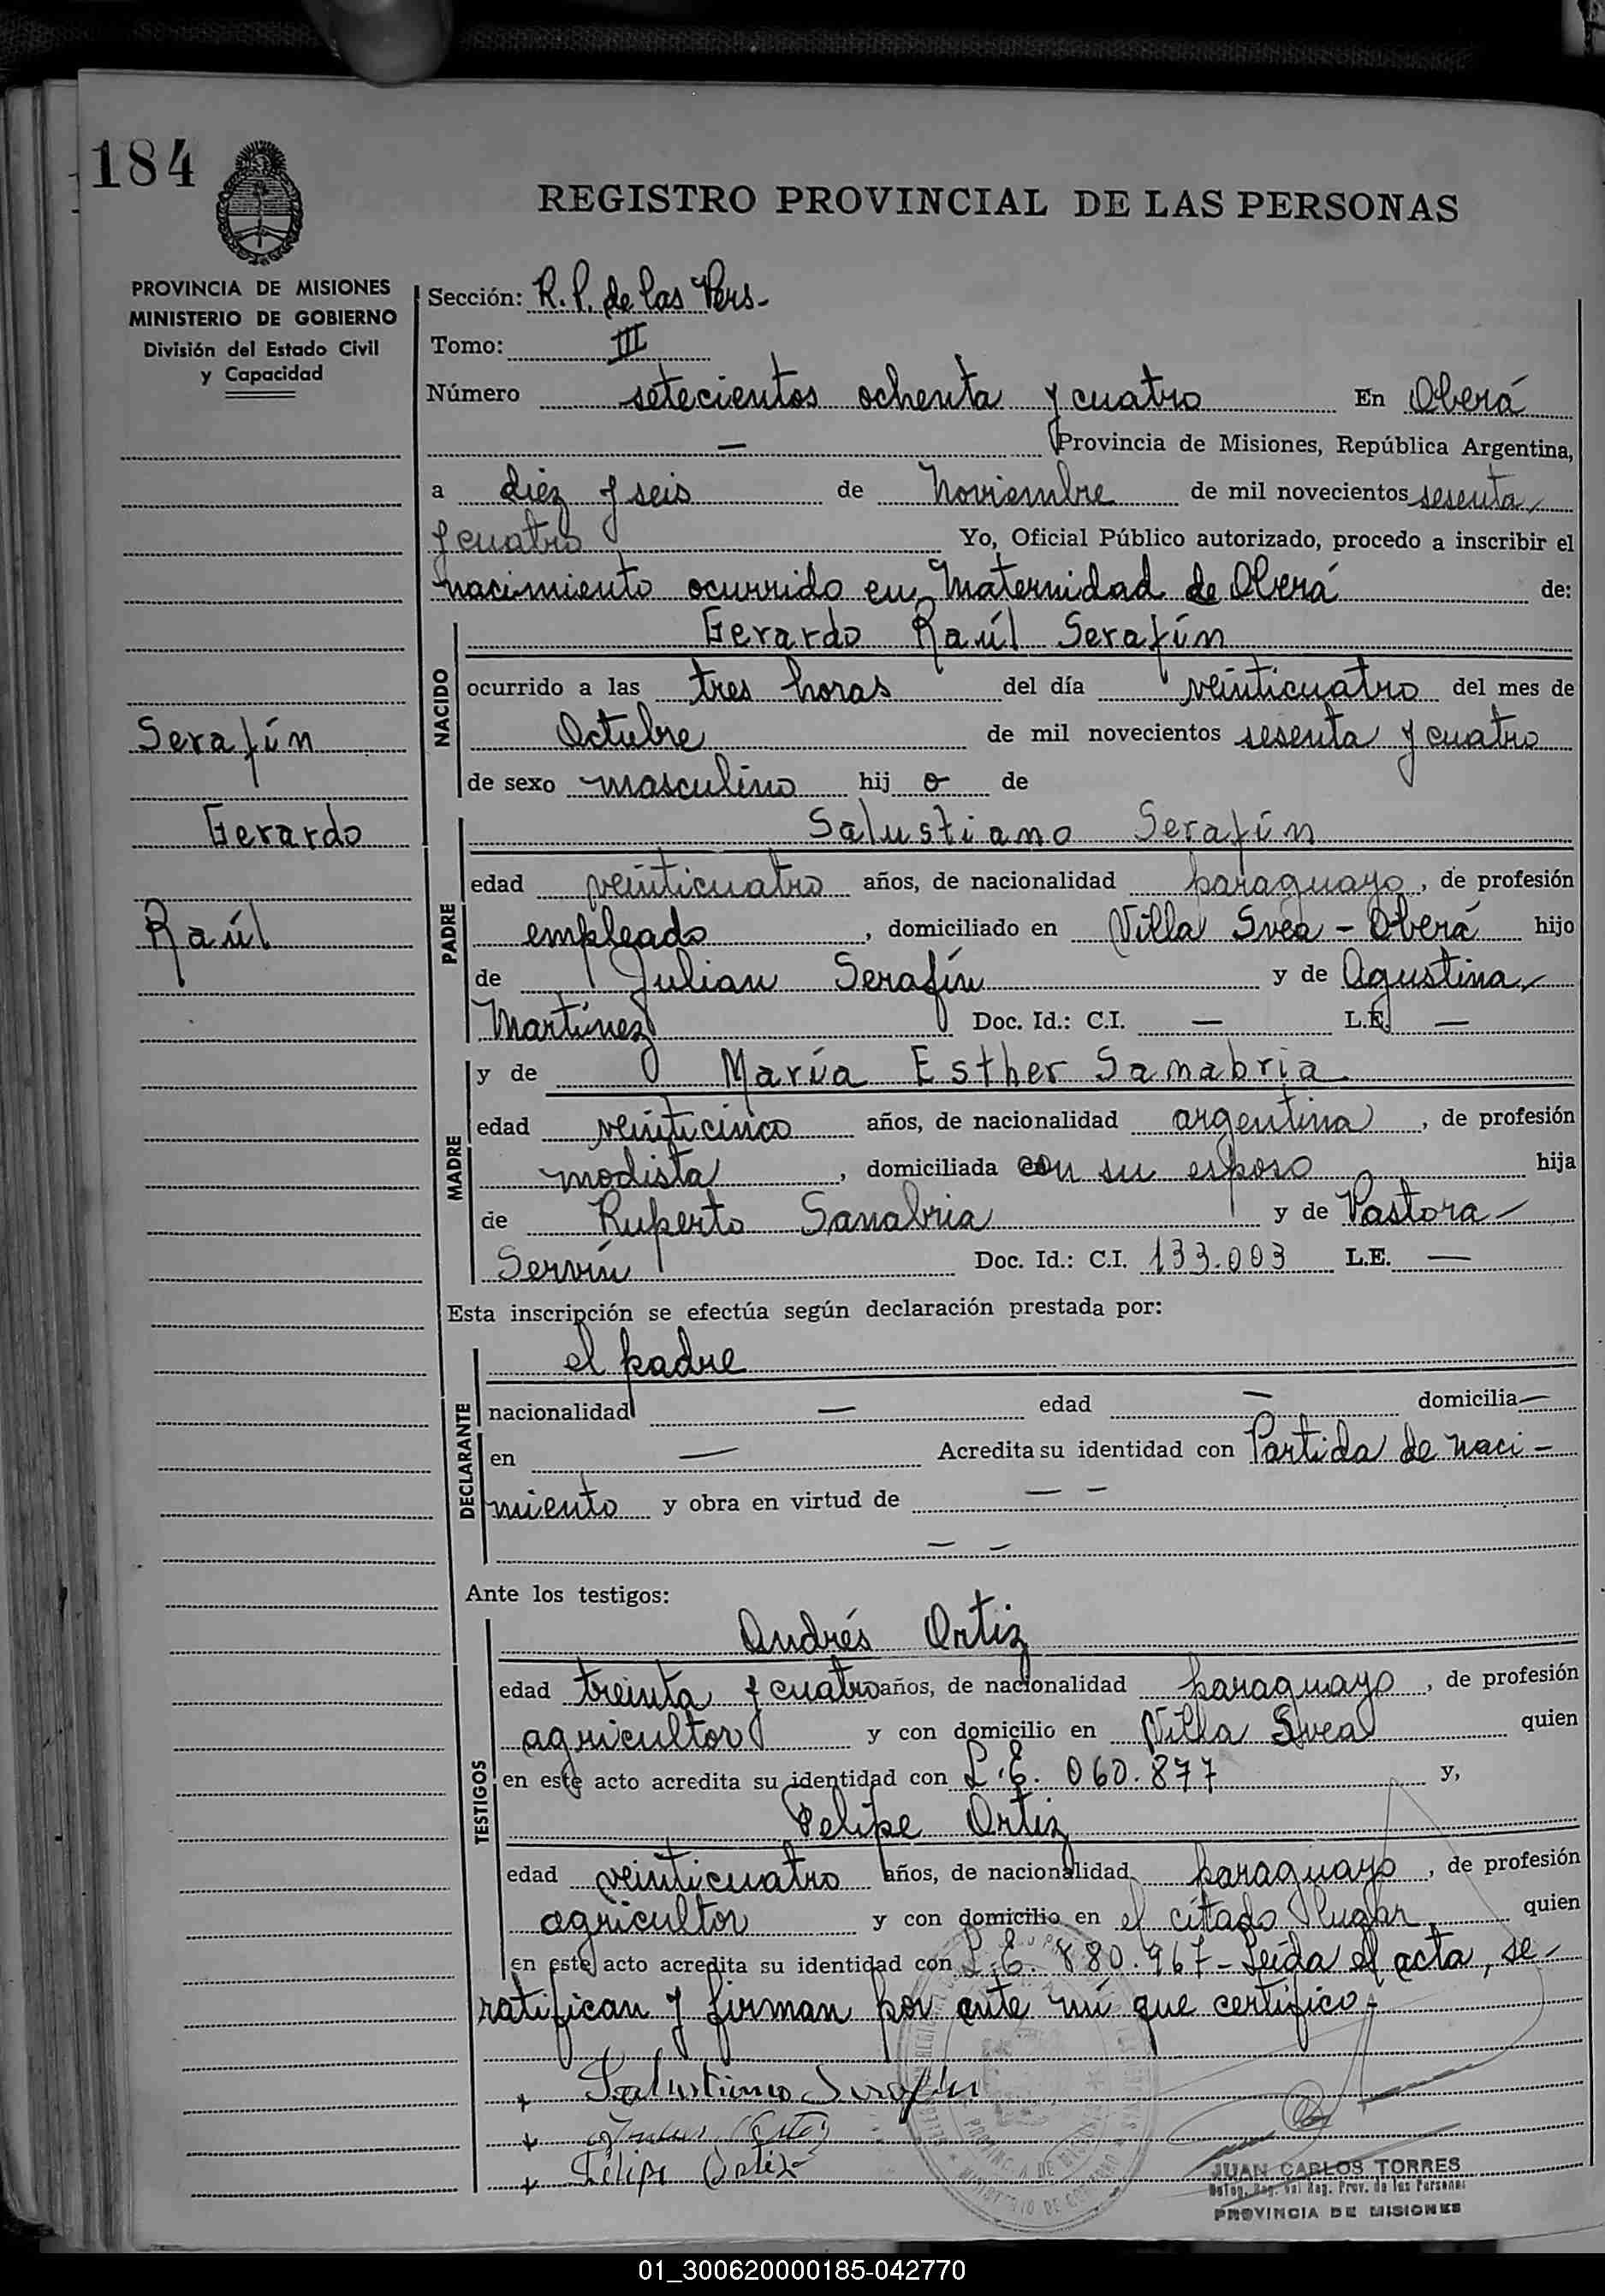 184
REGISTRO PROVINCIAL DE LAS PERSONAS
PROVINCIA DE MISIONES
MINISTERIO DE GOBIERNO
División del Estado Civil
y Capacidad
Serafín
Gerardo
Raúl
Sección: R. P. de las Pers-
Tomo: III
Número setecientos ochenta y cuatro En Oberá
— Provincia de Misiones, República Argentina,
a diez y seis de Noviembre de mil novecientos sesenta
y cuatro Yo, Oficial Público autorizado, procedo a inscribir el
nacimiento ocurrido en Maternidad de Oberá de:
NACIDO
Gerardo Raúl Serafín
ocurrido a las tres horas del día veinticuatro del mes de
Octubre de mil novecientos sesenta y cuatro
de sexo masculino hij o de
PADRE
Salustiano Serafín
edad veinticuatro años, de nacionalidad paraguayo, de profesión
empleado, domiciliado en Villa Svea - Oberá hijo
de Julian Serafín y de Agustina
Martínez Doc. Id.: C.I. — L.E. —
MADRE
y de María Esther Sanabria
edad veinticinco años, de nacionalidad argentina, de profesión
modista, domiciliada con su esposo hija
de Ruperto Sanabria y de Pastora -
Servín Doc. Id.: C.I. 133.003 L.E. —
Esta inscripción se efectúa según declaración prestada por:
DECLARANTE
el padre
nacionalidad — edad — domicilia —
en — Acredita su identidad con Partida de naci-
miento y obra en virtud de — —
— —
Ante los testigos:
TESTIGOS
Andrés Ortiz
edad treinta y cuatro años, de nacionalidad paraguayo, de profesión
agricultor y con domicilio en Villa Svea quien
en este acto acredita su identidad con L.E. 060.877 y,
Felipe Ortiz
edad veinticuatro años, de nacionalidad paraguayo, de profesión
agricultor y con domicilio en el citado lugar, quien
en este acto acredita su identidad con L.E. 880.967 - Leída el acta, se-
ratifican y firman por ante mí que certifico.-
+ Salustiano Serafín
+
+ Felipe Ortiz
JUAN CARLOS TORRES
PROVINCIA DE MISIONES
01_300620000185-042770